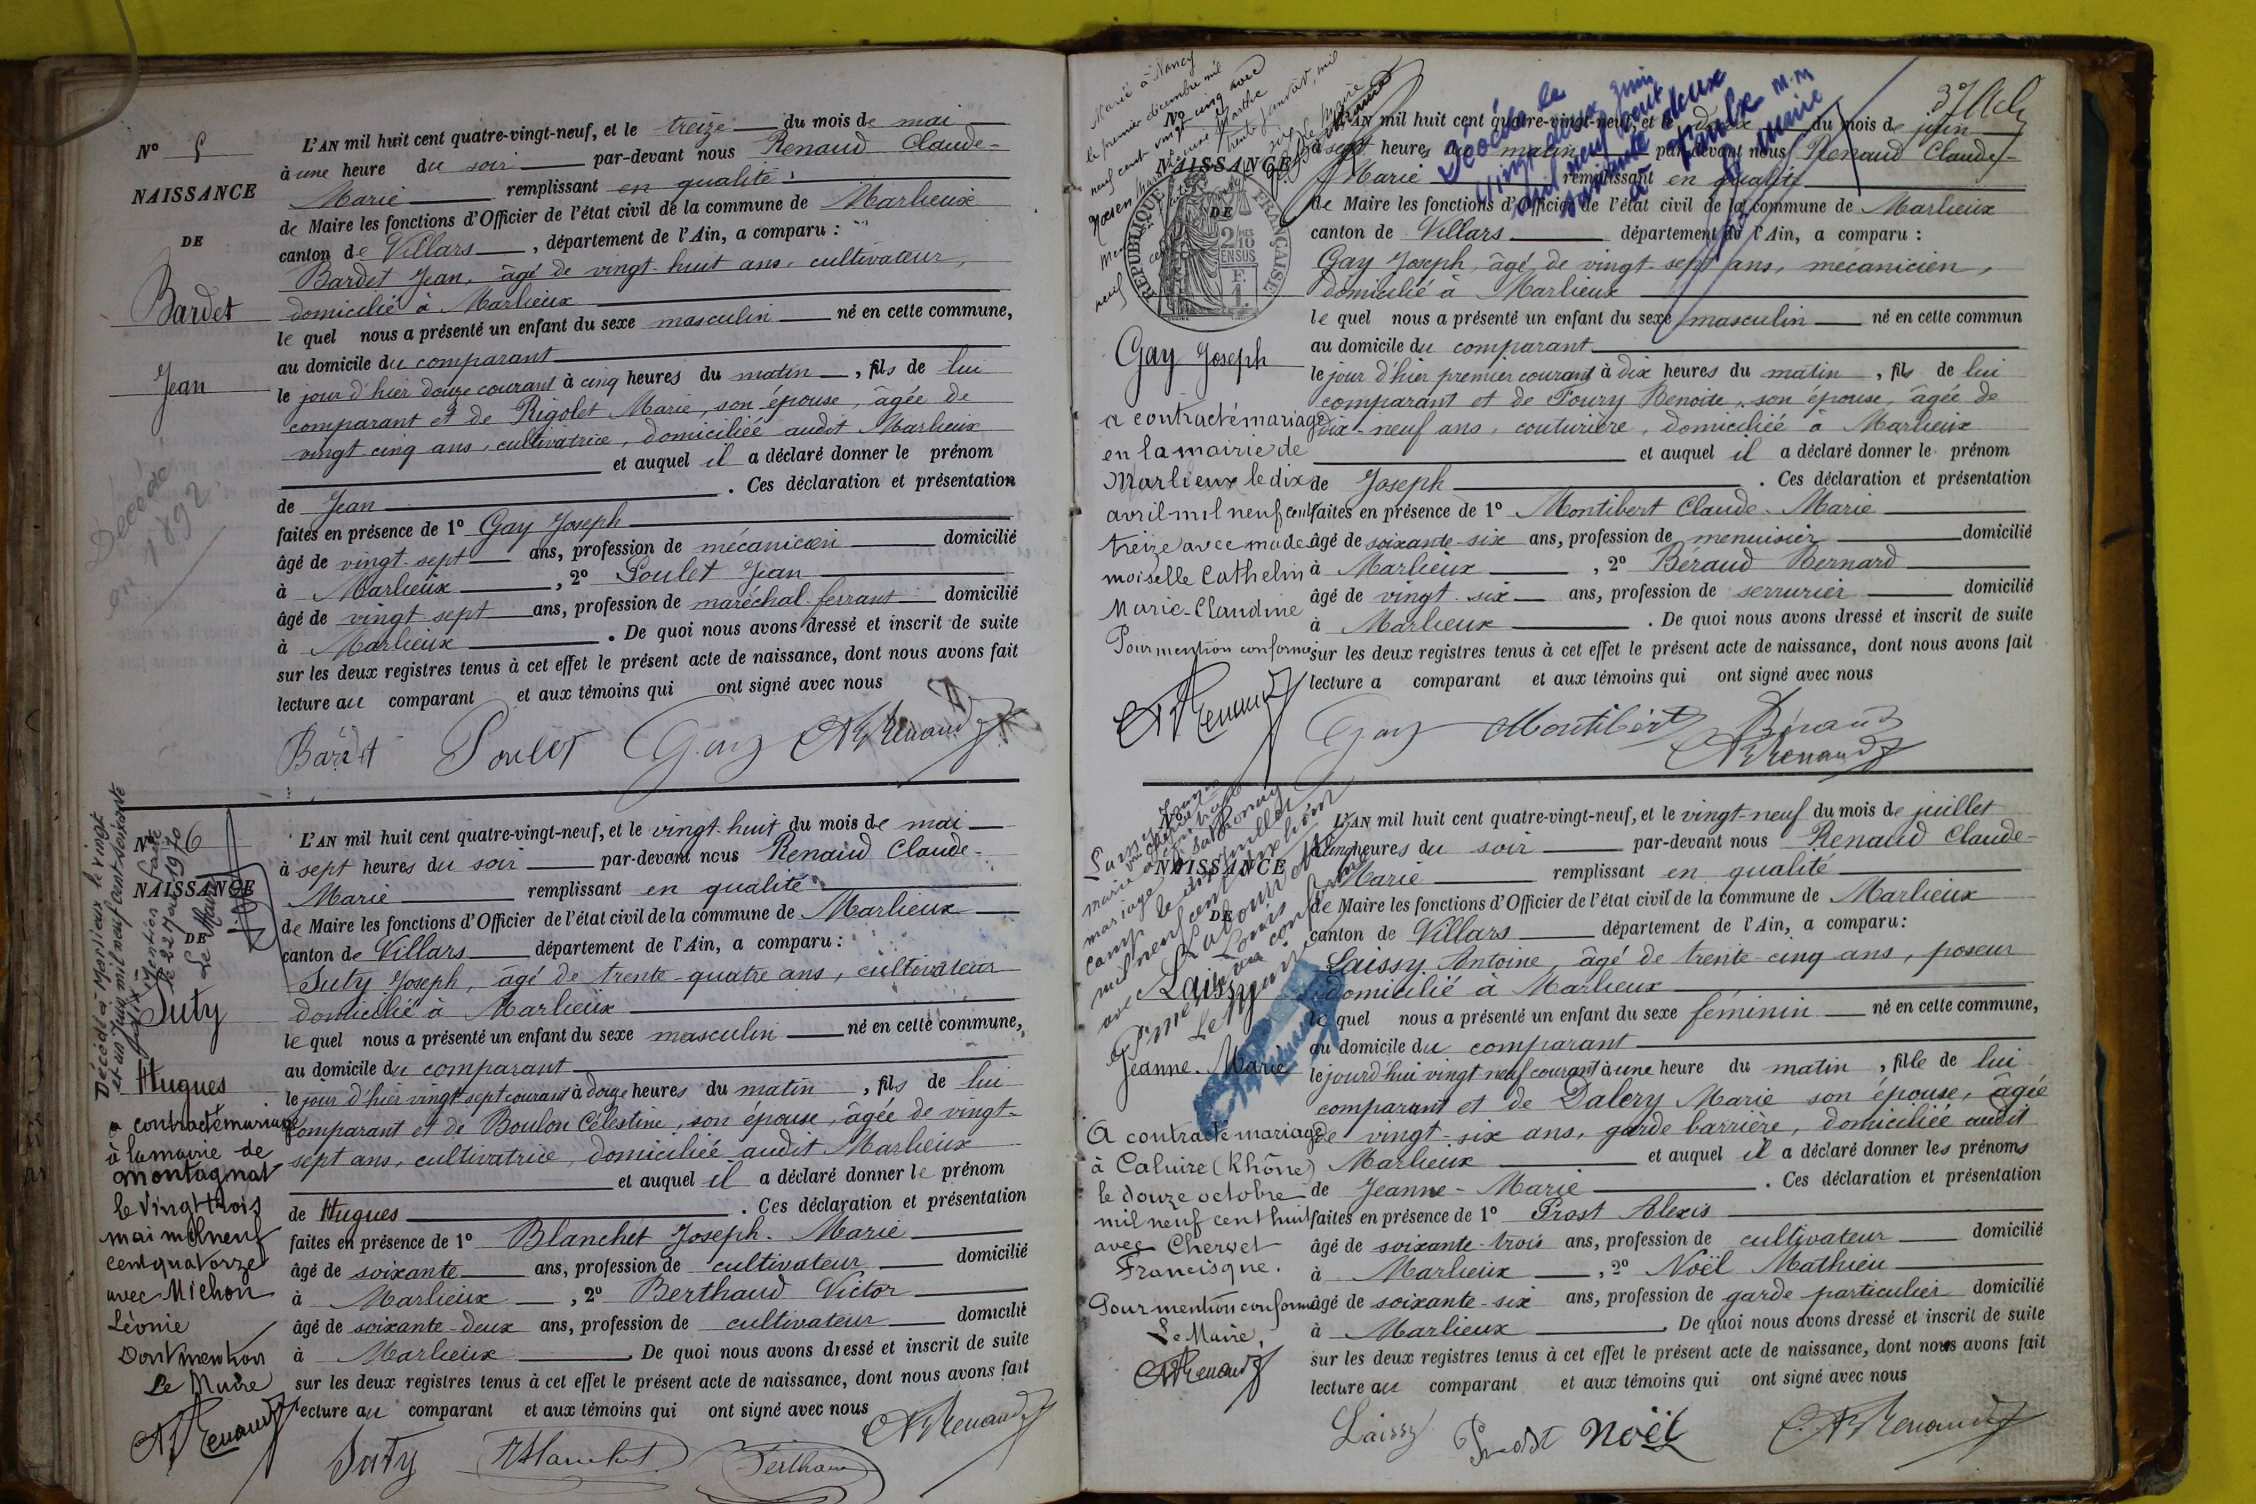 N° 5
NAISSANCE
DE
Bardet
Jean
Décédé
en 1892
L'AN mil huit cent quatre-vingt-neuf, et le treize du mois de mai
à une heure du soir par-devant nous Renaud Claude-
Marie remplissant en qualité
de Maire les fonctions d'Officier de l'état civil de la commune de Marlieux
canton de Villars, département de l'Ain, a comparu :
Bardet Jean, âgé de vingt-huit ans, cultivateur,
domicilié à Marlieux
le quel nous a présenté un enfant du sexe masculin né en cette commune,
au domicile du comparant
le jour d'hier douze courant à cinq heures du matin, fils de lui
comparant et de Rigolet Marie, son épouse, âgée de
vingt-cinq ans, cultivatrice, domiciliée audit Marlieux
et auquel il a déclaré donner le prénom
de Jean. Ces déclaration et présentation
faites en présence de 1° Gay Joseph
âgé de vingt-sept ans, profession de mécanicien domicilié
à Marlieux, 2° Poulet Jean
âgé de vingt sept ans, profession de maréchal-ferrant domicilié
à Marlieux. De quoi nous avons dressé et inscrit de suite
sur les deux registres tenus à cet effet le présent acte de naissance, dont nous avons fait
lecture au comparant et aux témoins qui ont signé avec nous
Bardet Poulet Gay Renaud
N° 6
NAISSANCE
DE
Juty
Hugues
Décédé à Marlieux le vingt
et un Juin mil neuf cent soixante
dix
Mention faite
le 22 1970
Le Maire
a contracté mariage
à la mairie de
Montagnat
le vingt trois
mai mil neuf
cent quatorze
avec Michon
Léonie
Dont mention
Le Maire
Renaud
L'AN mil huit cent quatre-vingt-neuf, et le vingt-huit du mois de mai
à sept heures du soir par-devant nous Renaud Claude-
Marie remplissant en qualité
de Maire les fonctions d'Officier de l'état civil de la commune de Marlieux
canton de Villars département de l'Ain, a comparu :
Juty Joseph, âgé de trente-quatre ans, cultivateur
domicilié à Marlieux
le quel nous a présenté un enfant du sexe masculin né en cette commune,
au domicile du comparant
le jour d'hier vingt sept courant à douze heures du matin, fils de lui
comparant et de Boulon Célestine, son épouse, âgée de vingt-
sept ans, cultivatrice, domiciliée audit Marlieux
et auquel il a déclaré donner le prénom
de Hugues. Ces déclaration et présentation
faites en présence de 1° Blanchet Joseph-Marie
âgé de soixante ans, profession de cultivateur domicilié
à Marlieux, 2° Berthaud Victor
âgé de soixante-deux ans, profession de cultivateur domicilié
à Marlieux. De quoi nous avons dressé et inscrit de suite
sur les deux registres tenus à cet effet le présent acte de naissance, dont nous avons fait
lecture au comparant et aux témoins qui ont signé avec nous
Juty Blanchet Berthaud Renaud
Marié à Nancy
le premier décembre mil
neuf cent vingt cinq avec
N°
NAISSANCE
DE
RÉPUBLIQUE FRANÇAISE
Gay Joseph
a contracté mariage
en la mairie de
Marlieux le dix
avril mil neuf cent
treize avec made
moiselle Cathelin
Marie-Claudine
Pour mention conforme
Renaud
Décédé le
vingt deux Juin
mil neuf cent
soixante deux
Le Maire
L'AN mil huit cent quatre-vingt-neuf, et le deux du mois de juin
à sept heures du matin par-devant nous Renaud Claude-
Marie remplissant en qualité
de Maire les fonctions d'Officier de l'état civil de la commune de Marlieux
canton de Villars département de l'Ain, a comparu :
Gay Joseph, âgé de vingt-sept ans, mécanicien,
domicilié à Marlieux
le quel nous a présenté un enfant du sexe masculin né en cette commun
au domicile du comparant
le jour d'hier premier courant à dix heures du matin, fils de lui
comparant et de Foury Benoite, son épouse, âgée de
dix-neuf ans, couturière, domiciliée à Marlieux
et auquel il a déclaré donner le prénom
de Joseph. Ces déclaration et présentation
faites en présence de 1° Montibert Claude-Marie
âgé de soixante-six ans, profession de menuisier domicilié
à Marlieux, 2° Béraud Bernard
âgé de vingt-six ans, profession de serrurier domicilié
à Marlieux. De quoi nous avons dressé et inscrit de suite
sur les deux registres tenus à cet effet le présent acte de naissance, dont nous avons fait
lecture a comparant et aux témoins qui ont signé avec nous
Gay Montibert Béraud
Renaud
NAISSANCE
DE
Laissy
Jeanne-Marie
A contracté mariage
à Caluire (Rhône)
le douze octobre
mil neuf cent huit
avec Chervet
Francisque.
Pour mention conforme
Le Maire,
Renaud
L'AN mil huit cent quatre-vingt-neuf, et le vingt-neuf du mois de juillet
à cinq heures du soir par-devant nous Renaud Claude-
Marie remplissant en qualité
de Maire les fonctions d'Officier de l'état civil de la commune de Marlieux
canton de Villars département de l'Ain, a comparu:
Laissy Antoine, âgé de trente-cinq ans, poseur
domicilié à Marlieux
le quel nous a présenté un enfant du sexe féminin né en cette commune,
au domicile du comparant
le jourd'hui vingt neuf courant à une heure du matin, fille de lui
comparant et de Dalery Marie son épouse, âgée
de vingt-six ans, garde barrière, domiciliée audit
Marlieux et auquel il a déclaré donner les prénoms
de Jeanne-Marie. Ces déclaration et présentation
faites en présence de 1° Prost Alexis
âgé de soixante-trois ans, profession de cultivateur domicilié
à Marlieux, 2° Noël Mathieu
âgé de soixante-six ans, profession de garde particulier domicilié
à Marlieux. De quoi nous avons dressé et inscrit de suite
sur les deux registres tenus à cet effet le présent acte de naissance, dont nous avons fait
lecture au comparant et aux témoins qui ont signé avec nous
Laissy Prost Noël Renaud